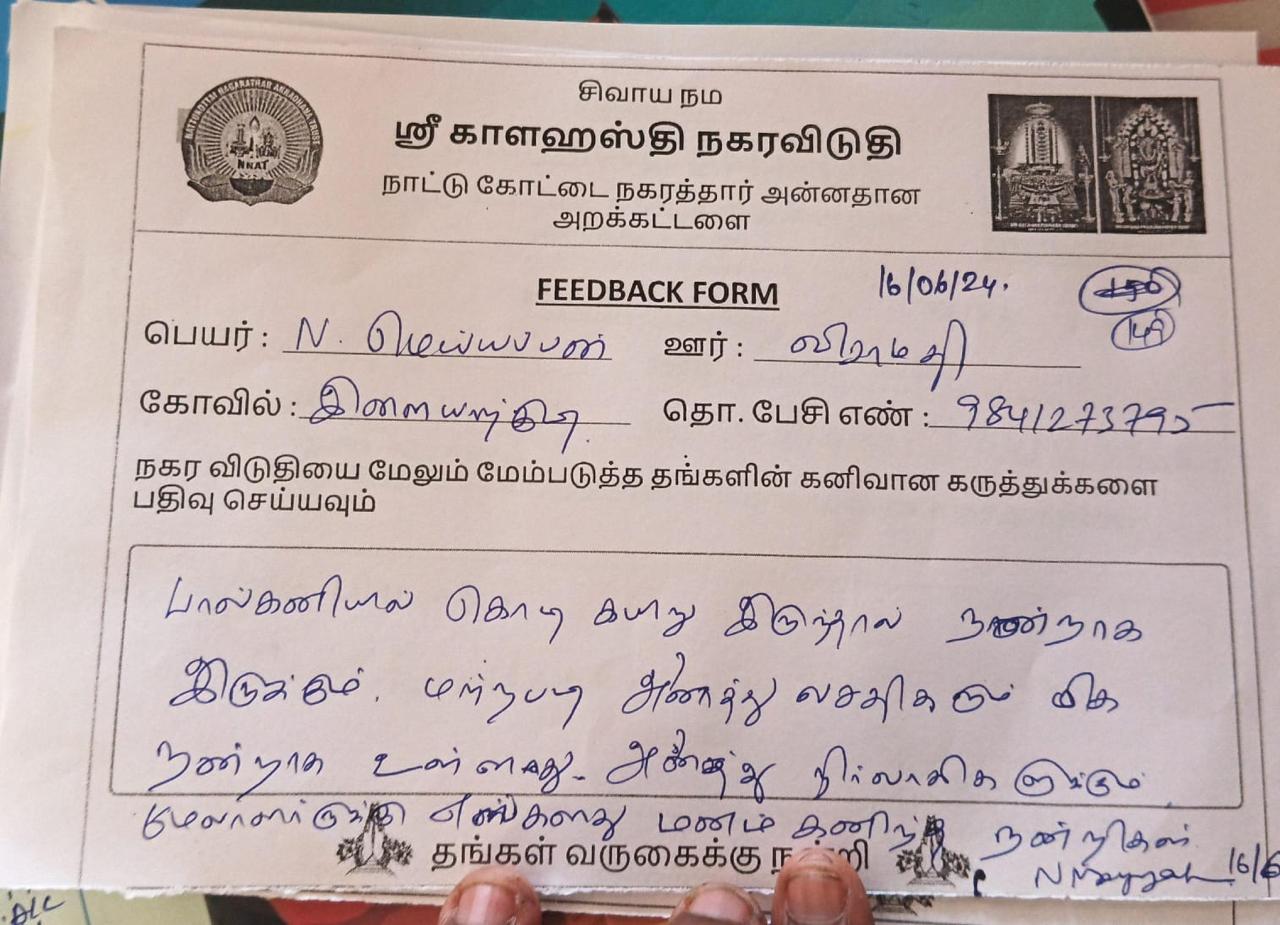 சிவாய நம
ஸ்ரீ காளஹஸ்தி நகரவிடுதி
நாட்டு கோட்டை நகரத்தார் அன்னதான
அறக்கட்டளை
NNAT
FEEDBACK FORM 16/06/24.
149
பெயர் : N. மெய்யப்பன் ஊர் : விராமதி
கோவில் : தொ. பேசி எண் : 9841273795
நகர விடுதியை மேலும் மேம்படுத்த தங்களின் கனிவான கருத்துக்களை
பதிவு செய்யவும்
பால்கனியில் கொடி கயிறு இருந்தால் நன்றாக
இருக்கும். மற்றபடி அனைத்து வசதிகளும் மிக
நன்றாக உள்ளது. அனைத்து நிர்வாகிகளுக்கும்
மேலாளருக்கு எங்களது மனம் கனிந்த நன்றிகள்.
தங்கள் வருகைக்கு நன்றி